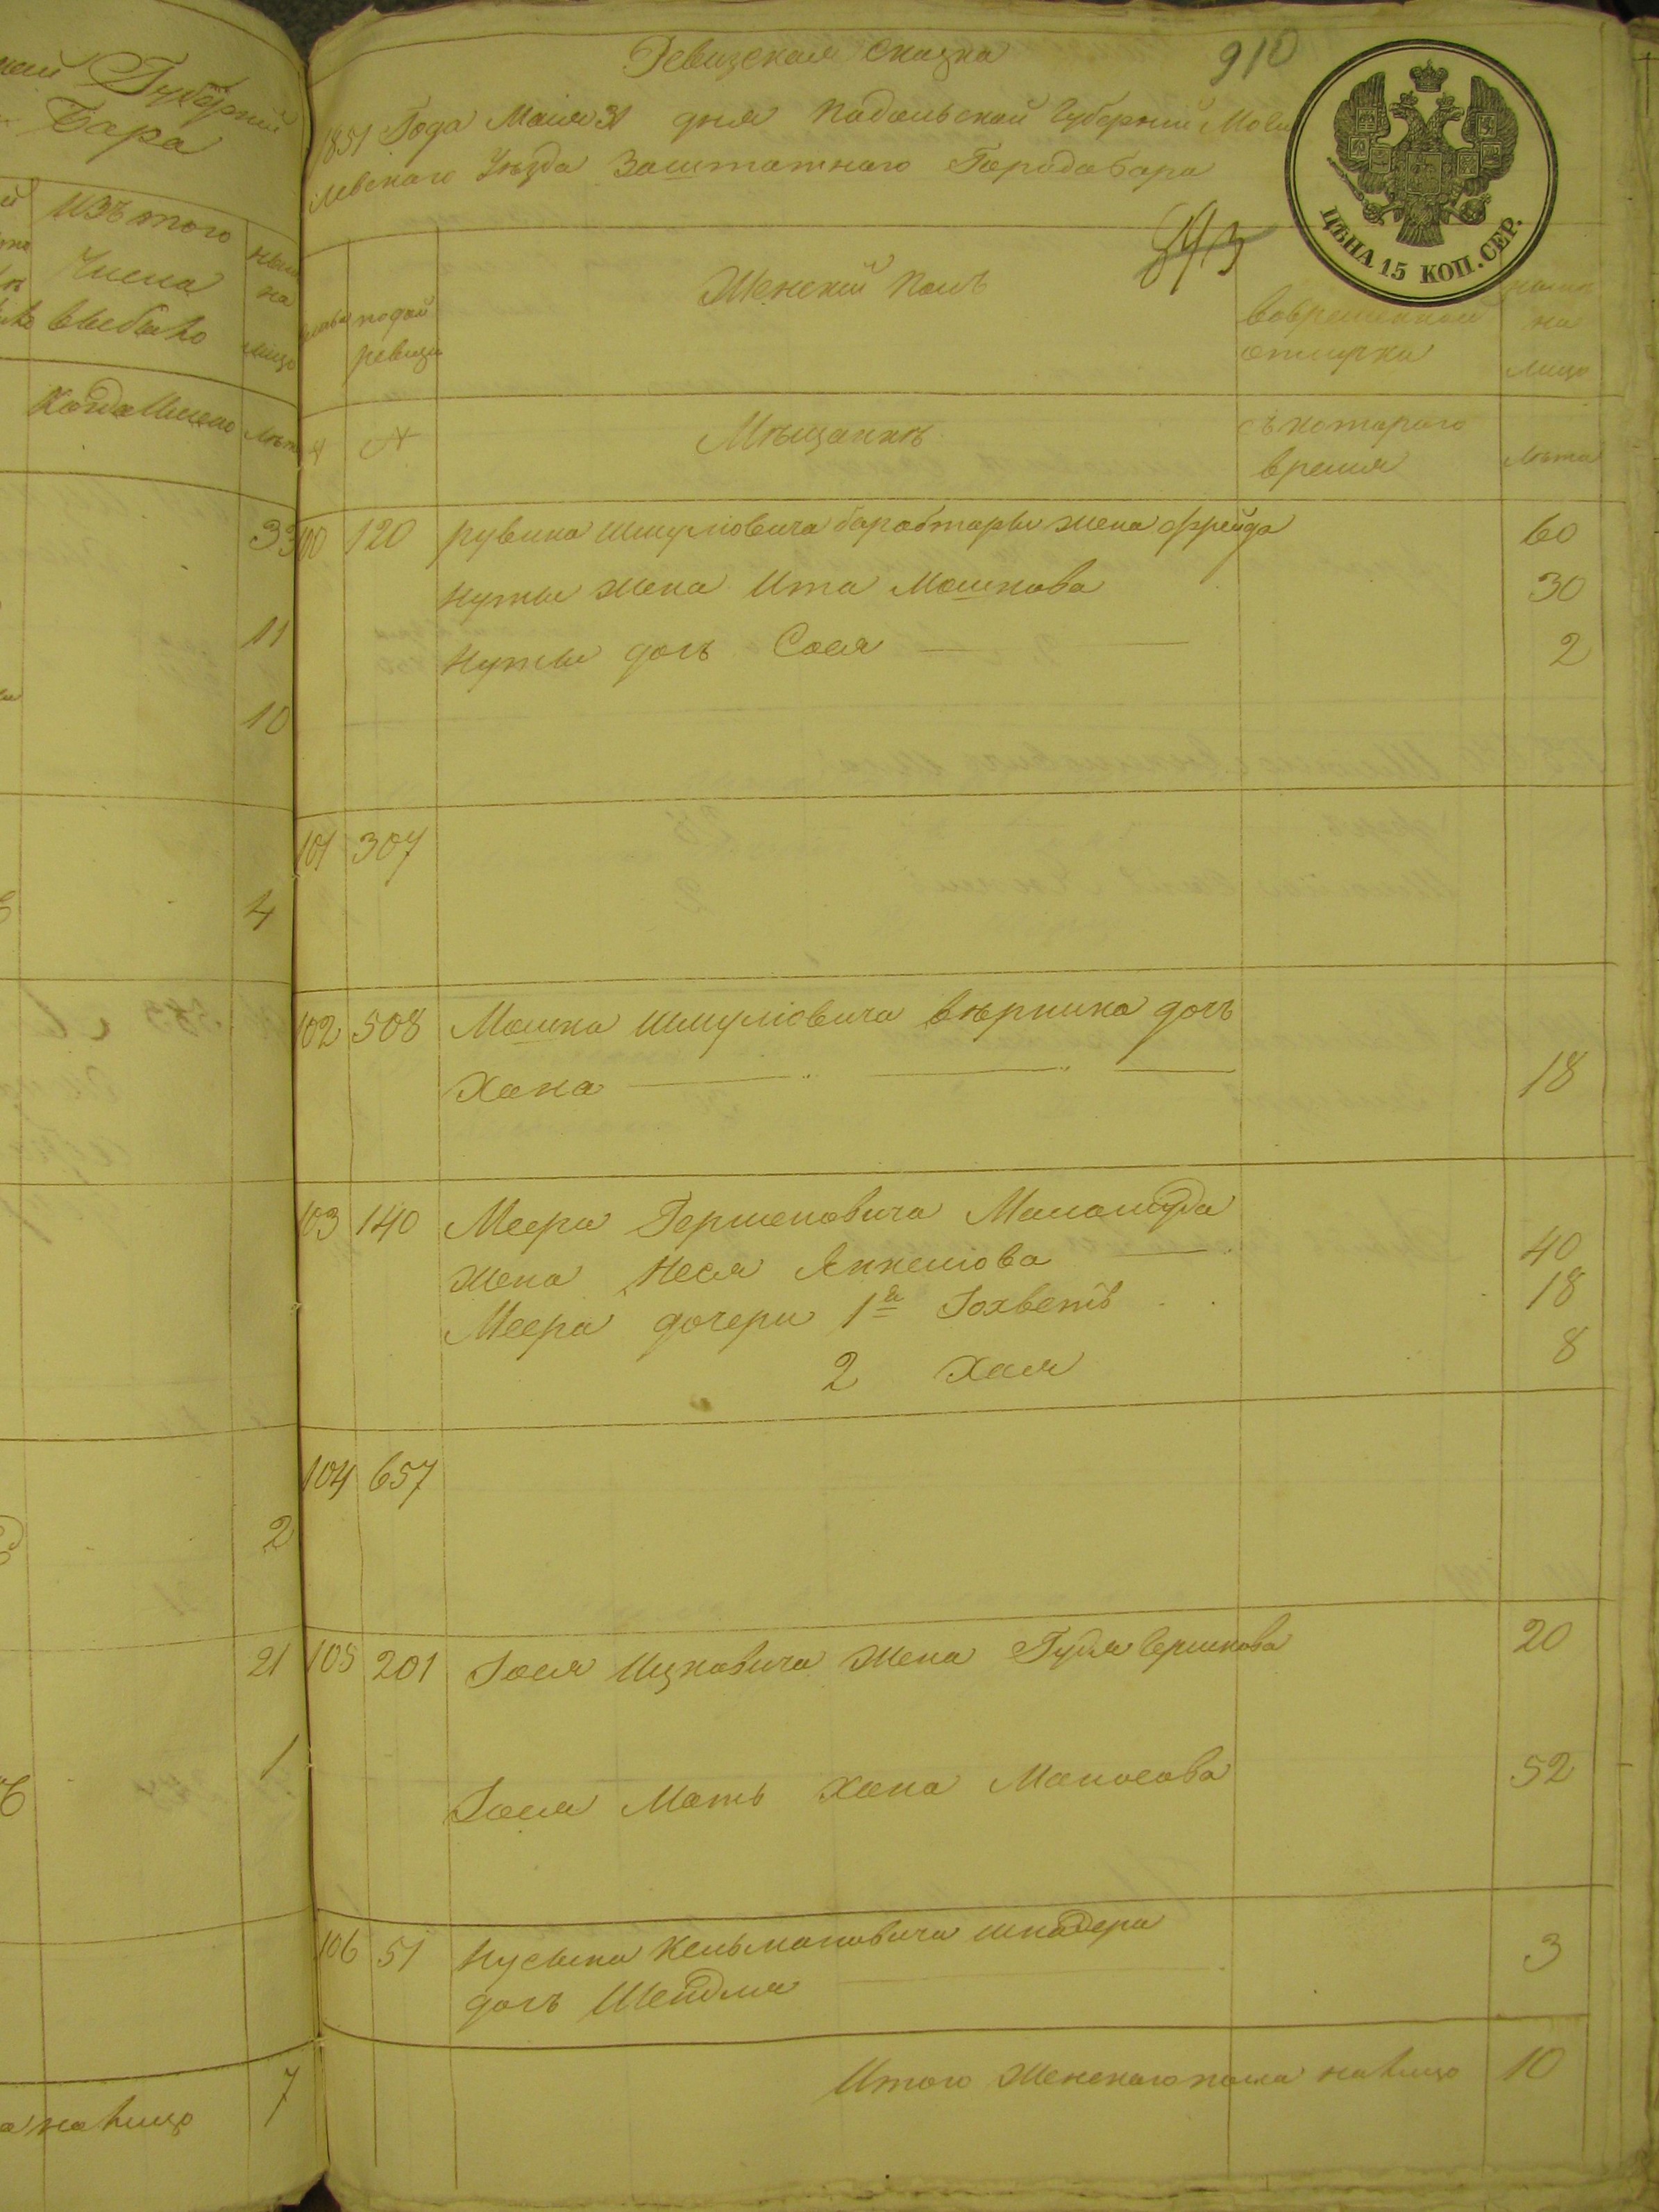 Губерніи
Бара
Изъ того
числа
выбыло
ныне
на
лицо
Когда именно
лета
33
11
10
4
2
21
1
7
на лицо
Ревизская сказка
910
1851 Года Маия 31 дня Подольской Губерніи Моги
левскаго Уезда Заштатнаго Города Бара
843
ЦѢНА 15 КОП. СЕР.
Женскій полъ
по той
ревизіи
во временной
отлучки
ныне
на
лицо
№
№
Мещанкѣ
съ котораго
время
лета
100 120 Рувина Шмуліовича жена Фрейда 60
Нуты жена Ита Мошкова 30
Нуты дочъ Сося 2
101 307
102 508 Мошка Шмуліовича Верника дочъ
Хана 18
103 140 Меера Гершковича
жена Неся Янкеліова 40
Меера дочери 1я Іохветъ 18
2 Хая 8
104 657
105 201 Іося Ицковича жена Гудля Гершкова 20
Іося мать Хана Маносова 52
106 51 Нусына Кельмановича Шнадера
дочъ Шейдля 3
Итого женскаго пола на лицо 10